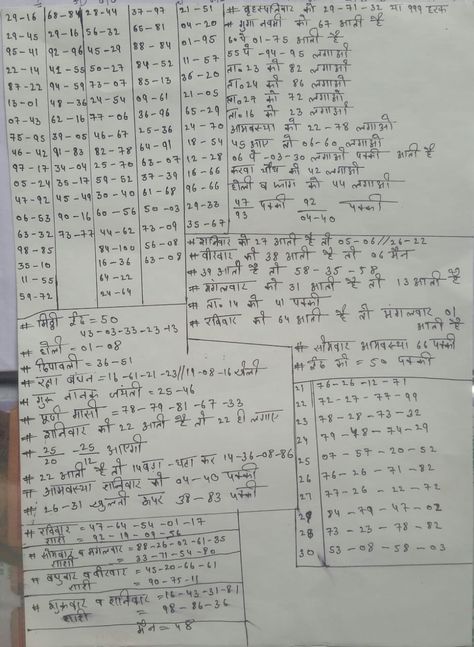 29-16
29-45
95-41
22-14
87-22
13-01
07-43
75-95
46-42
97-17
05-24
47-92
06-53
63-32
98-85
35-10
11-55
59-72
68-84
29-16
92-96
41-55
94-59
48-36
62-16
39-05
91-83
34-04
35-17
45-49
90-16
73-77
28-44
56-32
45-29
50-27
73-07
24-54
77-06
46-67
82-78
25-70
59-52
30-40
60-56
44-62
84-100
16-36
64-22
24-64
37-97
66-81
88-84
84-52
85-13
09-61
36-96
25-36
64-91
63-07
37-39
61-68
50-03
73-09
56-08
63-08
21-51
04-20
01-95
11-57
36-20
21-05
65-29
24-70
18-54
12-28
16-96
66-66
29-33
35-67
# बृहस्पतिवार को 29-71-32 या 999 हरफ
# गुगा नवमी को 67 आती है
60 पे 01-75 आती है
55 पे -94-95 लगाओ
ता० 23 को 82 लगाओ
ता० 24 को 86 लगाओ
ता० 27 को 72 लगाओ
ता० 16 को 23 लगाओ
आमवस्या को 22-78 लगाओ
45 आए तो 06-60 लगाओ
06 पे -03-30 लगाओ पक्की आती है
करवा चौथ को 42 लगाओ
होली व फाग को 44 लगाओ
47/93 पक्की 92/04-40 पक्की
# शनिवार को 27 आती है तो 05-06//26-22
# वीरवार को 38 आती है तो 06 मैन
# 39 आती है तो 58-35-58
# मंगलवार को 31 आती है तो 13 आती है
# ता० 14 को 41 पक्की
# रविवार को 64 आती है तो मंगलवार 01 आती है
# सोमवार आमवस्या 66 पक्की
# ईद को = 50 पक्की
# मिठ्ठी ईद = 50
43-03-33-23-13
# होली = 01-08
# दिपावली = 36-51
# रक्षा बंधन = 16-61-21-23//19-08-16 खेली
# गुरू नानक जयंती = 25-46
# = 78-79-81-67-33
# शनिवार को 22 आती है तो 22 ही लगाए
# 25/20 -25/12 आएगी
# 22 आती है तो 14 बढा-घटा कर 14-36-08-86
# आमवस्या शनिवार को 04-40 पक्की
# 26-31 खुलती ऊपर 38-83 पक्की
21 76-26-12-71
22 72-27-77-99
23 78-28-73-32
24 79-48-74-29
25 07-57-20-52
26 76-26-71-82
27 77-26-22-72
28 84-79-47-02
29 73-23-78-82
30 53-08-58-03
# रविवार = 47-64-54-01-17
शाही = 92-19-09-56
# सोमवार व मंगलवार = 88-26-02-61-35
शाही = 33-11-54-80
# बुधवार व वीरवार = 45-20-66-61
शाही = 90-75-11
# शुक्रवार व शनिवार = 16-43-31-81
शाही = 98-86-36
मैन = 48